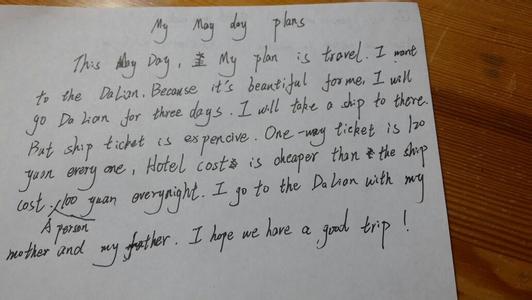 My May day plans
This May Day, My plan is travel. I want
to the DaLian. Because it's beautiful for me, I will
go Da Lian for three days. I will take a ship to there.
But ship ticket is expencive. One-way ticket is 120
yuan every one, Hotel cost is cheaper than the ship
cost. 100 yuan everynight. I go to the DaLian with my
A person
mother and my father. I hope we have a good trip!